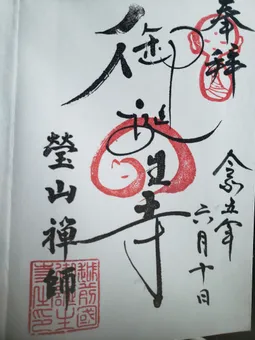 奉拝
令和五年
六月十日
御誕生寺
瑩山禅師
越前國
御誕生
寺之印